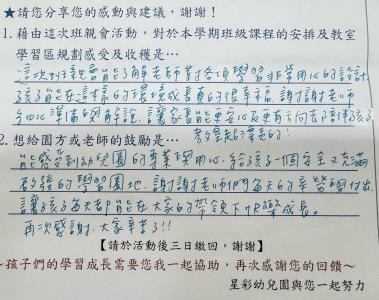 ★請您分享您的感動與建議，謝謝！
1. 藉由這次班親會活動，對於本學期班級課程的安排及教室
學習區規劃感受及收穫是…
這次班親會能了解老師對各項學習非常用心的設計
孩子能在這樣的環境成長真的很幸福.謝謝老師
細心準備與解說.讓家長能更安心及更有方向去陪伴孩子.
教室超漂亮的!
2. 想給園方或老師的鼓勵是…
能感受到幼兒園的專業與用心.給孩子一個安全又充滿
啟發的學習園地.謝謝老師們每天的辛勞與付出
讓孩子每天都能在大家的帶領下快樂成長。
再次感謝.大家辛苦了!!
【請於活動後三日繳回，謝謝】
～孩子們的學習成長需要您我一起協助，再次感謝您的回饋～
星彩幼兒園與您一起努力